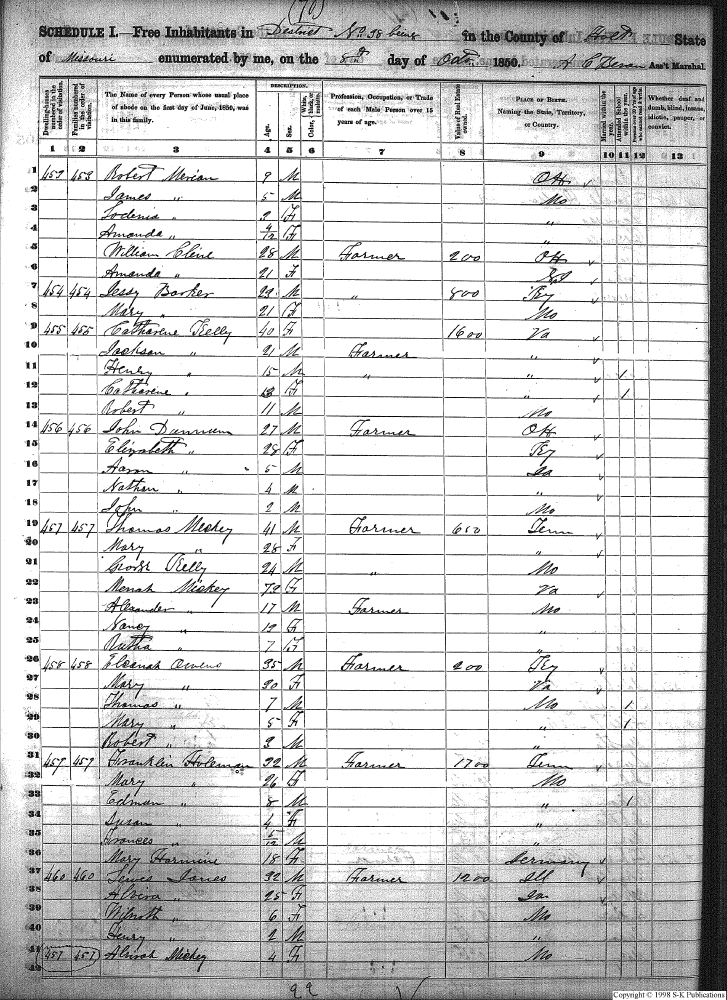 (70)
SCHEDULE I.—Free Inhabitants in District No 38 being in the County of Holt State
of Missouri enumerated by me, on the 8th day of Octr 1850. Ass't Marshal.
DESCRIPTION.
Dwelling-houses numbered in the order of visitation.
Families numbered in the order of visitation.
The Name of every Person whose usual place of abode on the first day of June, 1850, was in this family.
Age.
Sex.
Color, White, black, or mulatto.
Profession, Occupation, or Trade of each Male Person over 15 years of age.
Value of Real Estate owned.
PLACE OF BIRTH. Naming the State, Territory, or Country.
Married within the year.
Attended School within the year.
Whether deaf and dumb, blind, insane, idiotic, pauper, or convict.
1 2 3 4 5 6 7 8 9 10 11 12 13
1 453 453 Robert 9 M OH
2 James " 5 M Mo
3 " 2 F "
4 Amanda " F "
5 William Cline 28 M Farmer 200 OH
6 Amanda " 21 F
7 454 454 Jessy Barker 29 M " 800 Ky
8 Mary " 21 F Mo
9 455 455 Catharine Kelly 40 F 1600 Va
10 Jackson " 21 M Farmer "
11 Henry " 15 M " " 1
12 Catharine " 13 F " 1
13 Robert " 11 M Mo
14 456 456 John 27 M Farmer OH
15 Elizabeth " 28 F Ky
16 Aaron " 5 M Ia
17 Nathan " 4 M "
18 John " 2 M Mo
19 457 457 Thomas Mickey 41 M Farmer 600 Tenn
20 Mary " 28 F "
21 Kelly 24 M " Mo
22 Mickey 79 F Va
23 Alexander " 17 M Farmer Mo
24 Nancy " 12 F "
25 " 7 F "
26 458 458 Owens 35 M Farmer 200 Ky
27 Mary " 30 F Va
28 Thomas " 7 M Mo 1
29 Mary " 5 F " 1
30 Robert " 3 M "
31 459 459 Franklin Holeman 32 M Farmer 1700 Tenn
32 Mary " 26 F Mo
33 Edman " 8 M " 1
34 Susan " 4 F "
35 Frances " 5/12 M "
36 Mary 18 F Germany
37 460 460 James 32 M Farmer 1200 Ill
38 Alvira " 25 F Ia
39 " 6 F Mo
40 Henry " 2 M "
41 457 457 Mickey 4 F Mo
42
Copyright © 1998 S-K Publications